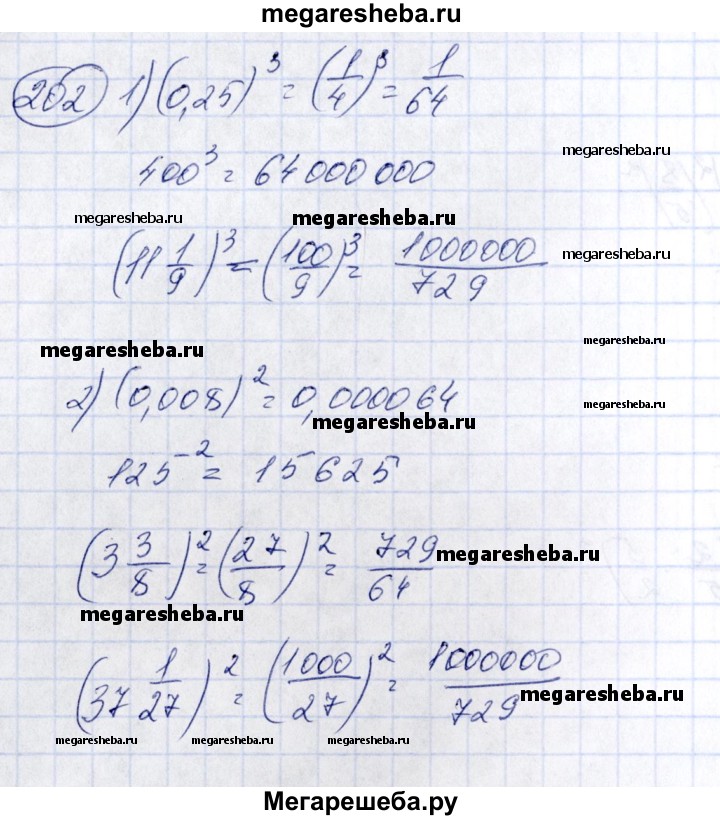 megaresheba.ru
202 1) (0,25)³ = (1/4)³ = 1/64
megaresheba.ru
400³ = 64 000 000
megaresheba.ru megaresheba.ru
(11 1/9)³ = (100/9)³ = 1000000/729
megaresheba.ru
megaresheba.ru
megaresheba.ru
2) (0,008)² = 0,000064
megaresheba.ru
megaresheba.ru
125⁻² = 15 625
(3 3/8)² = (27/8)² = 729/64
megaresheba.ru
megaresheba.ru
(37 1/27)² = (1000/27)² = 1000000/729
megaresheba.ru
megaresheba.ru megaresheba.ru megaresheba.ru megaresheba.ru
Мегарешеба.ру